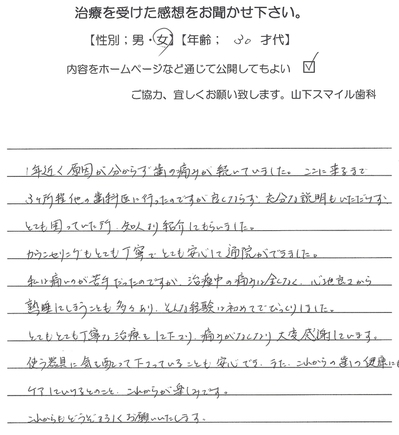 治療を受けた感想をお聞かせ下さい。
【性別；男・女】【年齢； 30 才代】
内容をホームページなど通じて公開してもよい ☑
ご協力、宜しくお願い致します。山下スマイル歯科
1年近く原因が分からず歯の痛みが続いていました。ここに来るまで
3ヶ所程他の歯科医に行ったのですが良くならず、充分な説明もいただけず
とても困っていた所、知人より紹介してもらいました。
カウンセリングもとても丁寧でとても安心して通院ができました。
私は痛いのが苦手だったのですが、治療中の痛みは全くなく、心地良さから
熟睡してしまうことも多々あり、そんな経験は初めてでびっくりしました。
とてもとても丁寧な治療をして下さり、痛みがなくなり大変感謝しています。
使う器具に気を配って下さっていることも安心でき、また、これからの歯の健康にも
ケアしていけるとのこと、これからが楽しみです。
これからもどうぞよろしくお願いいたします。